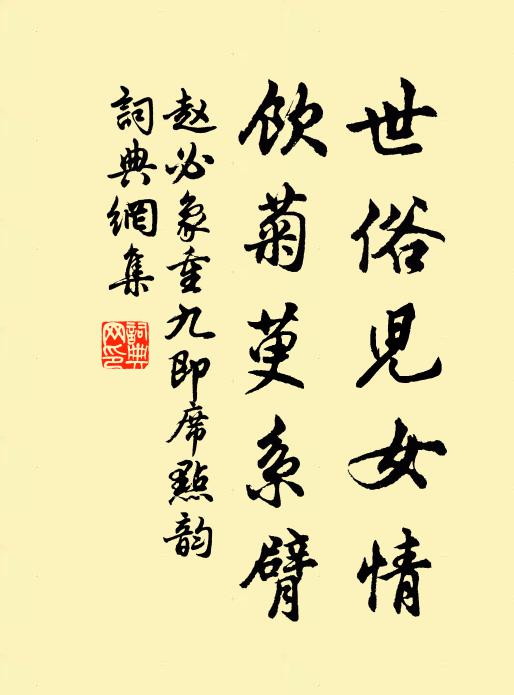 世俗兒女情
飲菊萸系臂
赵必象重九即席點韵
詞典網集
詞典網印